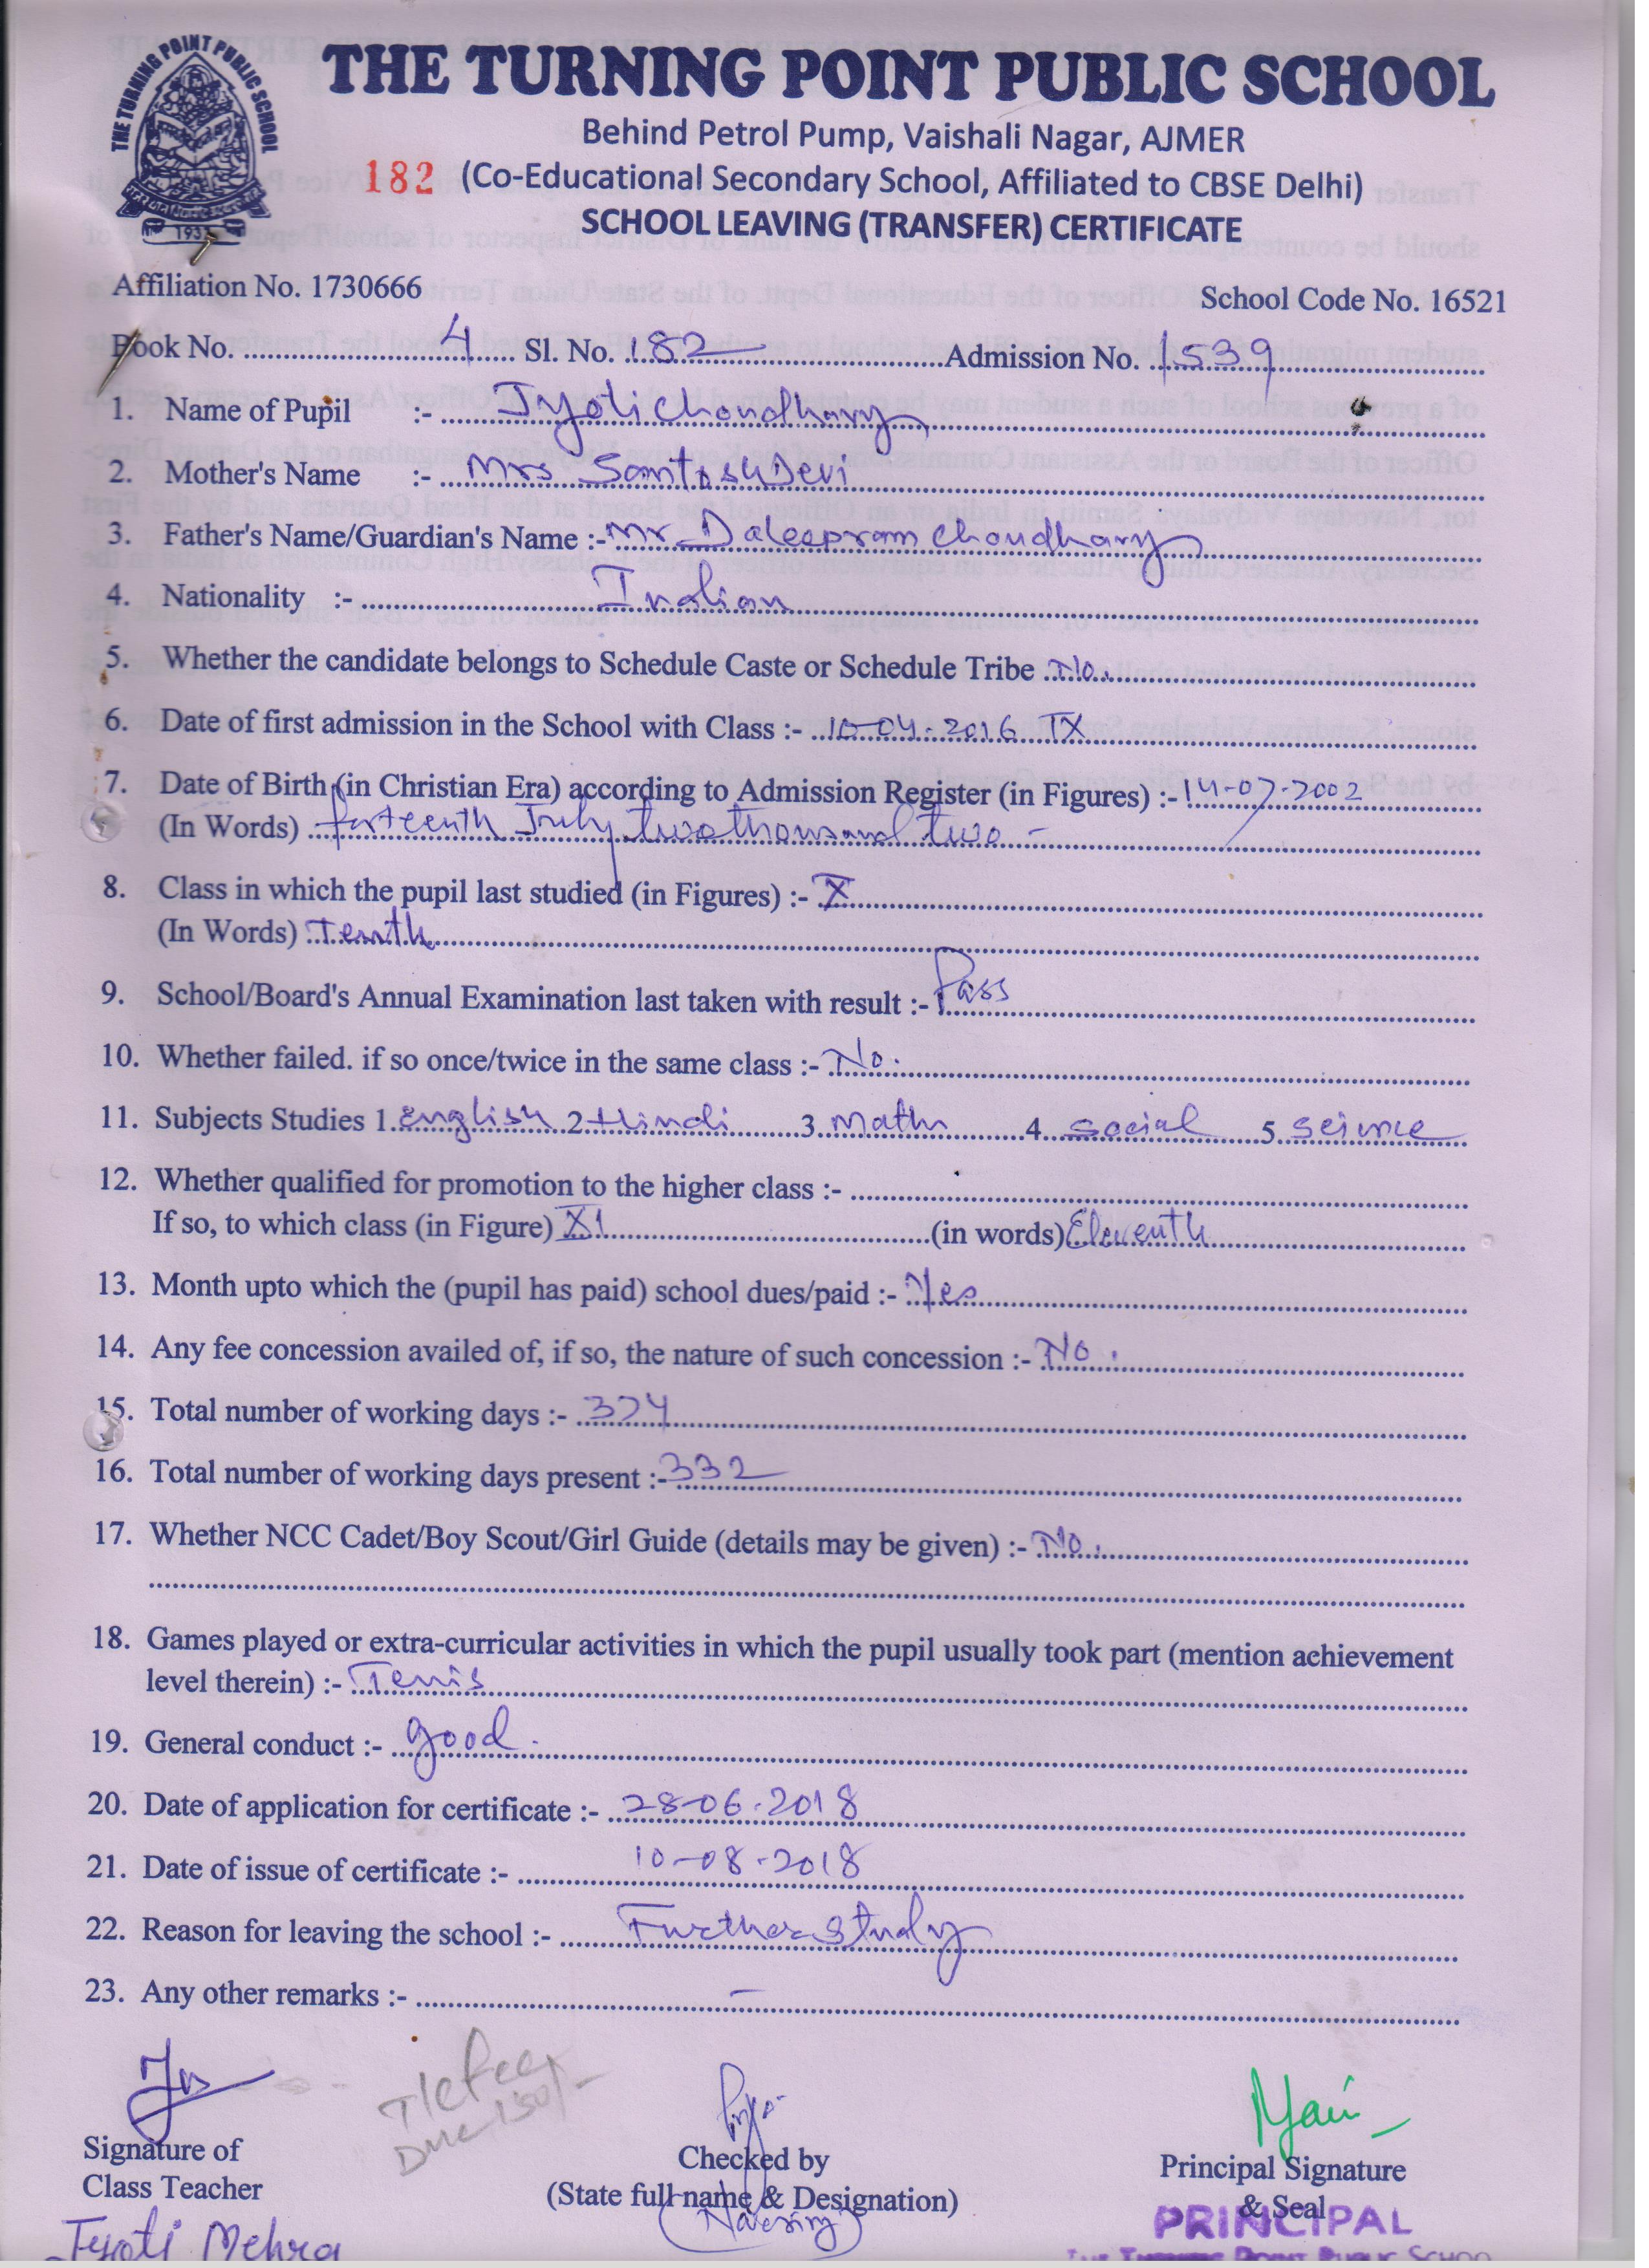 THE TURNING POINT PUBLIC SCHOOL
THE TURNING POINT PUBLIC SCHOOL
Behind Petrol Pump, Vaishali Nagar, AJMER
182 (Co-Educational Secondary School, Affiliated to CBSE Delhi)
SCHOOL LEAVING (TRANSFER) CERTIFICATE
Affiliation No. 1730666 School Code No. 16521
Book No. 4 Sl. No. 182 Admission No. 1539
1. Name of Pupil :- Jyoti Choudhary
2. Mother's Name :- Mrs Santosh Devi
3. Father's Name/Guardian's Name :- Mr Daleepram Choudhary
4. Nationality :- Indian
5. Whether the candidate belongs to Schedule Caste or Schedule Tribe No.
6. Date of first admission in the School with Class :- 10-04-2016 IX
7. Date of Birth (in Christian Era) according to Admission Register (in Figures) :- 14-07-2002
(In Words) forteenth July two thousand two -
8. Class in which the pupil last studied (in Figures) :- X
(In Words) Tenth
9. School/Board's Annual Examination last taken with result :- Pass
10. Whether failed. if so once/twice in the same class :- No.
11. Subjects Studies 1. English 2 Hindi 3. Maths 4. Social 5. Science
12. Whether qualified for promotion to the higher class :-
If so, to which class (in Figure) XI (in words) Eleventh
13. Month upto which the (pupil has paid) school dues/paid :- Yes
14. Any fee concession availed of, if so, the nature of such concession :- No.
15. Total number of working days :- 374
16. Total number of working days present :- 332
17. Whether NCC Cadet/Boy Scout/Girl Guide (details may be given) :- No.
18. Games played or extra-curricular activities in which the pupil usually took part (mention achievement
level therein) :- Tenis
19. General conduct :- good.
20. Date of application for certificate :- 28-06-2018
21. Date of issue of certificate :- 10-08-2018
22. Reason for leaving the school :- Further study
23. Any other remarks :- -
Due 150/-
Signature of
Class Teacher
Jyoti Mehra
Checked by
(State full name & Designation)
Principal Signature
& Seal
PRINCIPAL
THE TURNING POINT PUBLIC SCHOO